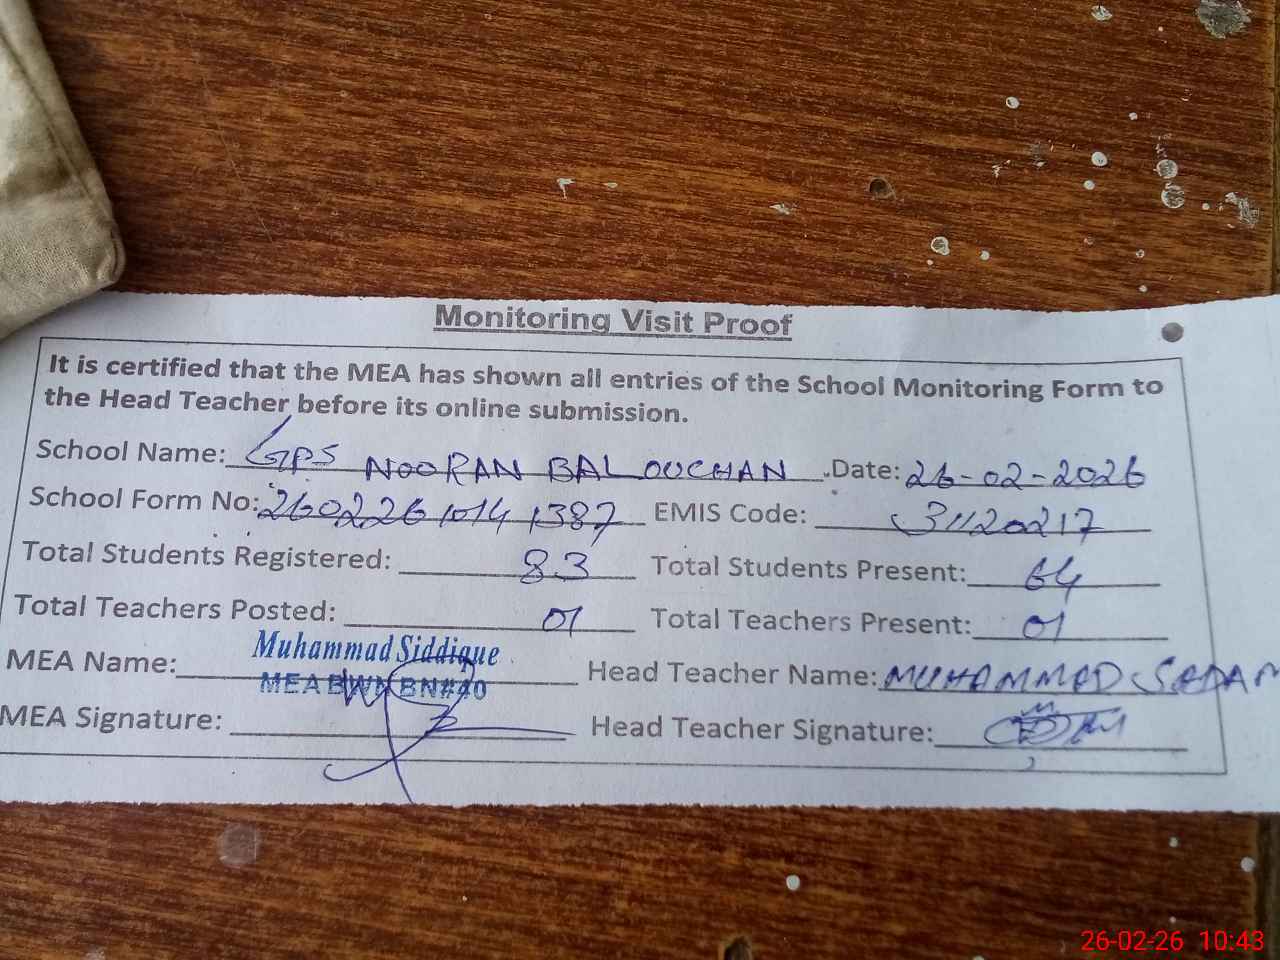 Monitoring Visit Proof
It is certified that the MEA has shown all entries of the School Monitoring Form to
the Head Teacher before its online submission.
School Name: GPS NOORAN BALOUCHAN .Date: 26-02-2026
School Form No: 26022610141387 EMIS Code: 31120217
Total Students Registered: 83 Total Students Present: 64
Total Teachers Posted: 01 Total Teachers Present: 01
MEA Name: Muhammad Siddique Head Teacher Name: MUHAMMAD
MEA BWN BN#40
MEA Signature: Head Teacher Signature:
26-02-26 10:43